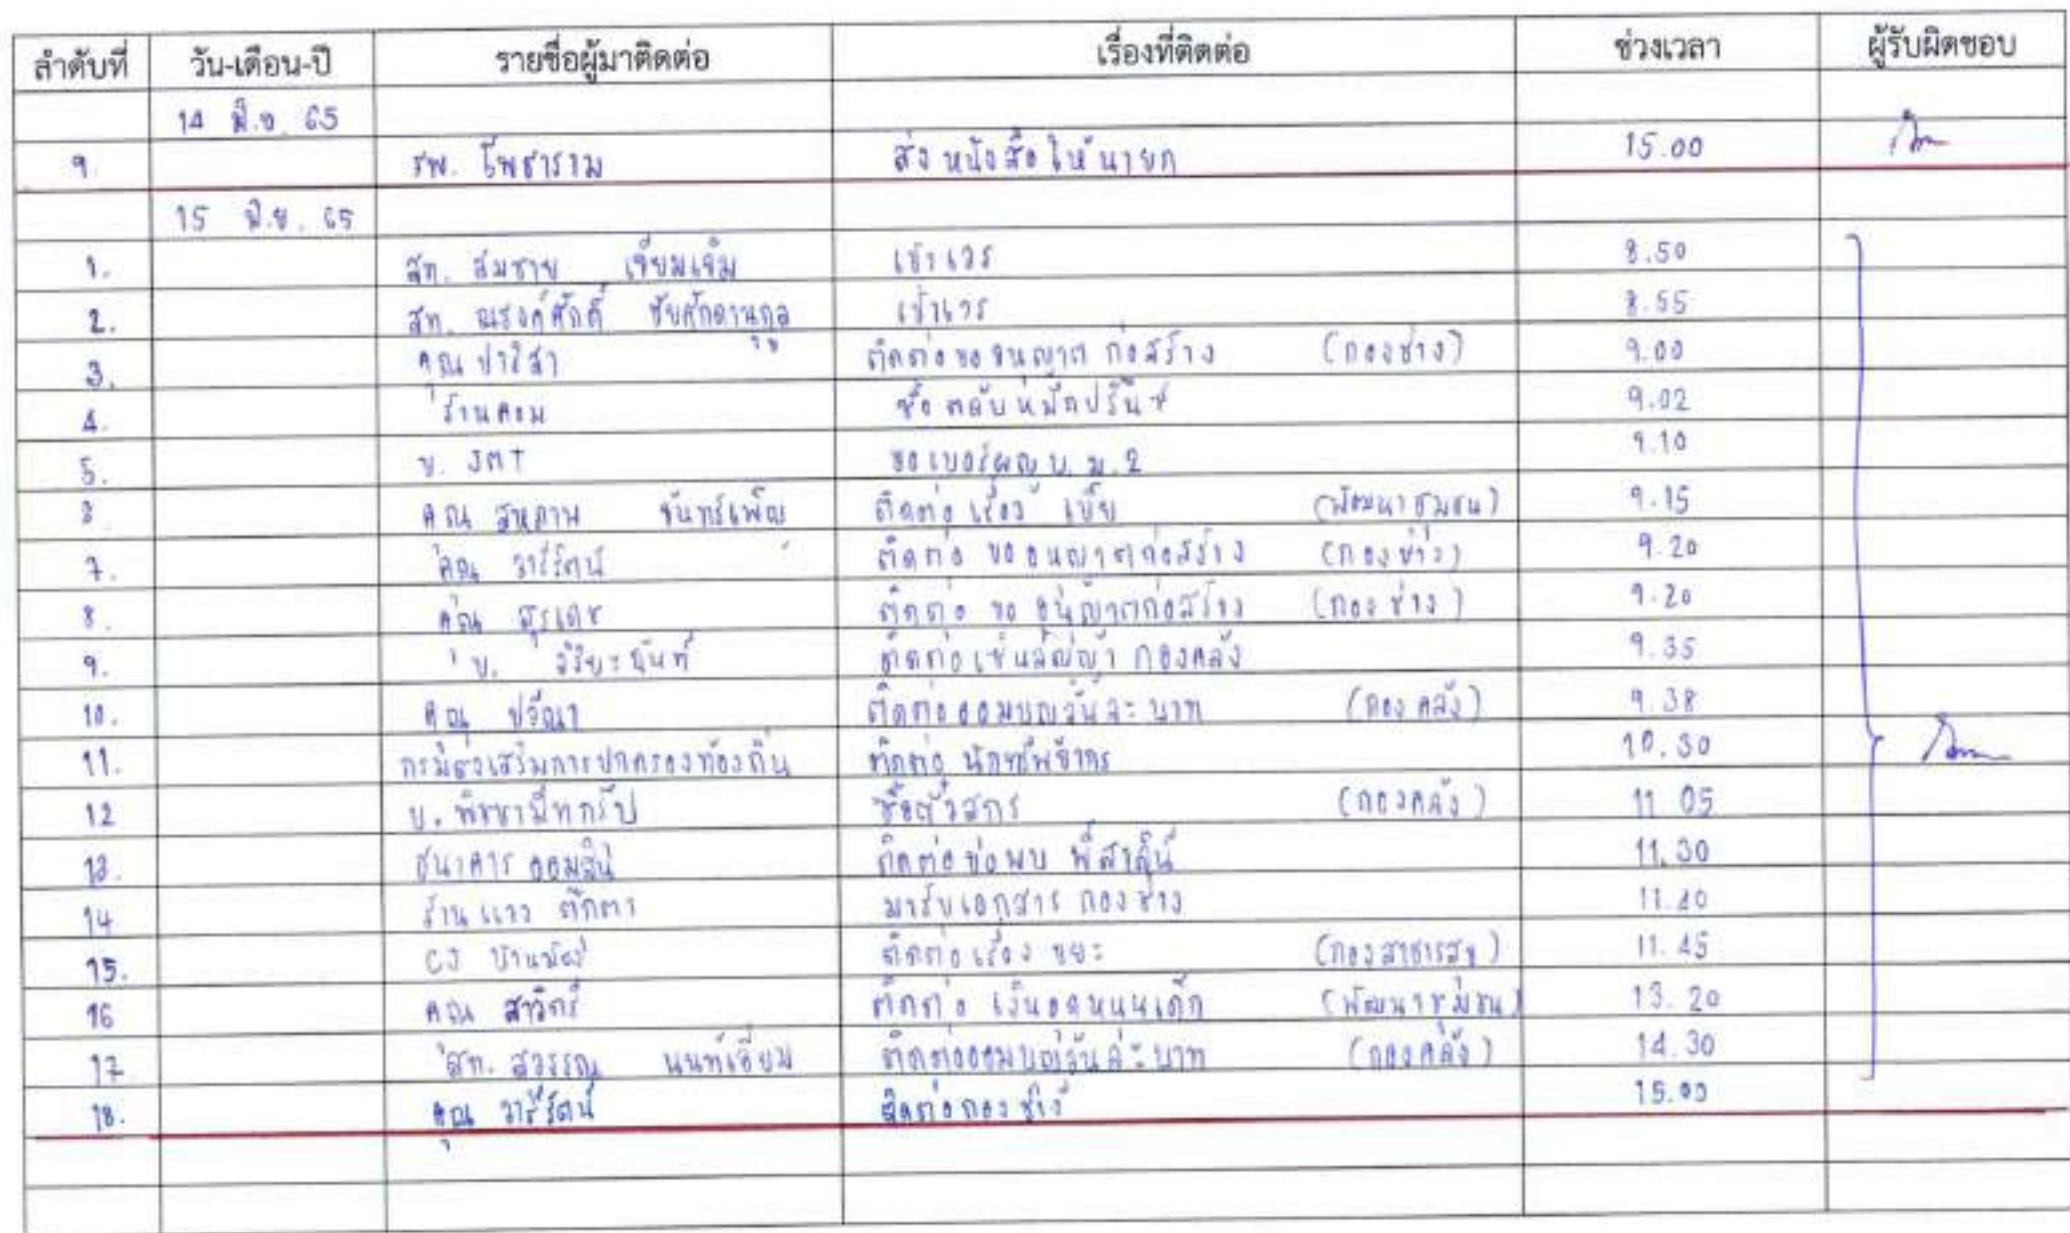 ลำดับที่ วัน-เดือน-ปี รายชื่อผู้มาติดต่อ เรื่องที่ติดต่อ ช่วงเวลา ผู้รับผิดชอบ
14 มิ.ย. 65
9 รพ. โพธาราม ส่งหนังสือให้นายก 15.00
15 มิ.ย. 65
1. สท. สมชาย เจียมเจิม เข้าเวร 8.50
2. สท. ณรงค์ศักดิ์ ชัยศักดานุกูล เข้าเวร 8.55
3. คุณ ปาริสา ติดต่อขออนุญาต ก่อสร้าง (กองช่าง) 9.00
4. ร้านคอม ซื้อตลับหมึกปริ้นท์ 9.02
5. บ. JMT ขอเบอร์ผญบ. ม.2 9.10
คุณ จันทร์เพ็ญ ติดต่อเรื่อง เบี้ย (พัฒนาชุมชน) 9.15
7. คุณ วารีรัตน์ ติดต่อ ขออนุญาตก่อสร้าง (กองช่าง) 9.20
8. คุณ สุรเดช ติดต่อ ขอ อนุญาตก่อสร้าง (กองช่าง) 9.20
9. บ. วิริยะนันท์ ติดต่อเซ็นสัญญา กองคลัง 9.35
10. คุณ ปวีณา ติดต่อออมบุญวันละบาท (กองคลัง) 9.38
11. กรมส่งเสริมการปกครองท้องถิ่น ติดต่อ นักทรัพยากร 10.30
12 บ. ซื้อตั๋ว (กองคลัง) 11.05
13. ธนาคาร ออมสิน ติดต่อขอพบ พี่สาลินี 11.30
14 ร้าน ตุ๊กตา มารับเอกสาร กองช่าง 11.40
15. CJ ติดต่อเรื่อง ขยะ (กองสาธารสุข) 11.45
16 คุณ สาวิตรี ติดต่อ เงินอุดหนุนเด็ก (พัฒนาชุมชน) 13.20
17 สท. สุวรรณ นนท์เอี่ยม ติดต่อออมบุญวันละบาท (กองคลัง) 14.30
18. คุณ วารีรัตน์ ติดต่อกองช่าง 15.00